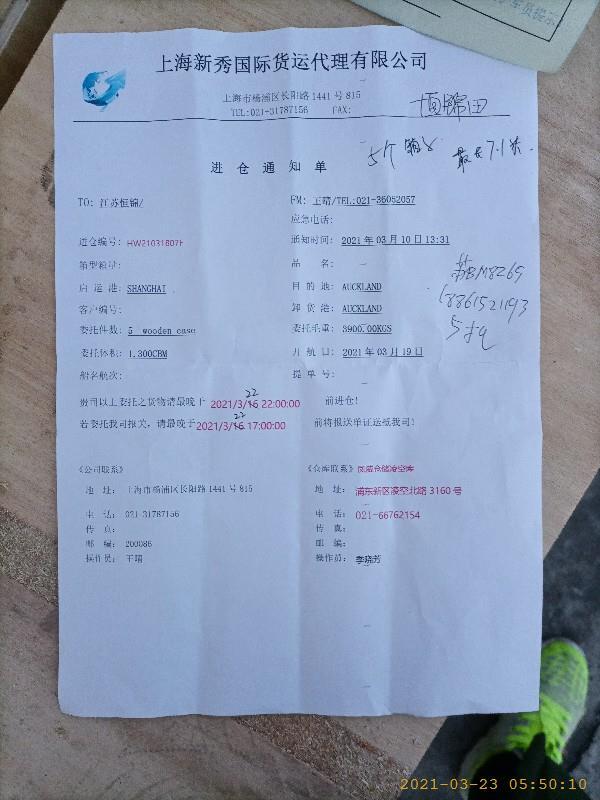 上海新秀国际货运代理有限公司
上海市杨浦区长阳路 1441 号 815
TEL:021-31787156 FAX:
5个箱子 最长7.1米.
进仓通知单
TO: 江苏恒锦/ FM: 王晴/TEL:021-36052057
应急电话:
进仓编号: 通知时间: 2021 年 03 月 10 日 13:31
箱型箱量: 品 名:
启运港: SHANGHAI 目的地: AUCKLAND
苏BM8269
客户编号: 卸货港: AUCKLAND
18861521193
委托件数: 5 wooden case 委托毛重: 3900.00KGS
5托
委托体积: 1.300CBM 开航日: 2021 年 03 月 19 日
船名航次: 提单号:
22
贵司以上委托之货物请最晚于 2021/3/16 22:00:00 前进仓!
22
若委托我司报关, 请最晚于2021/3/16 17:00:00 前将报送单证送抵我司!
《公司联系》 《仓库联系》
地 址: 上海市杨浦区长阳路 1441 号 815 地 址: 浦东新区凌空北路 3160 号
电 话: 021-31787156 电 话: 021-66762154
传 真: 传 真:
邮 编: 200086 邮 编:
操作员: 王晴 操作员: 李晓芳
2021-03-23 05:50:10